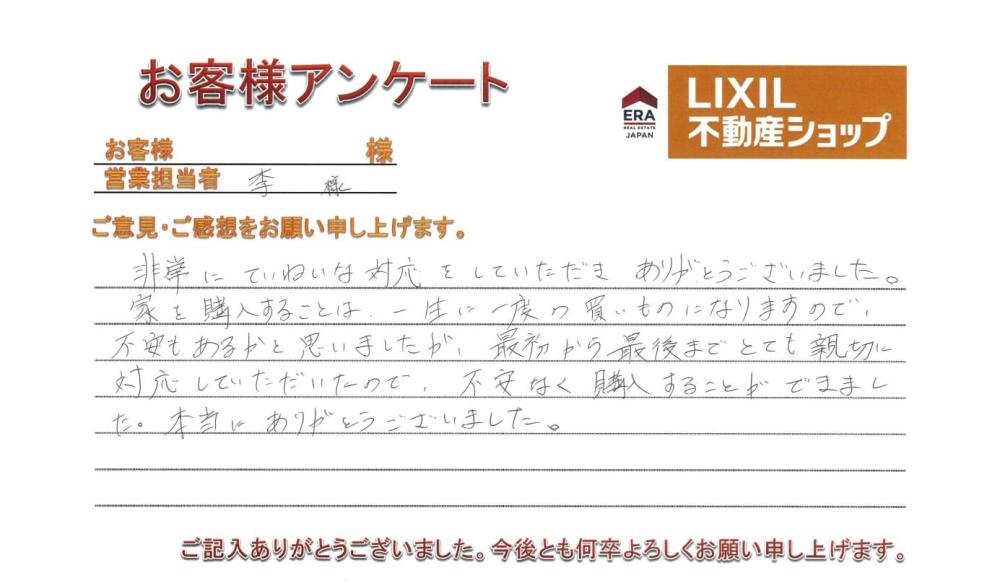 お客様アンケート
ERA
REAL ESTATE
JAPAN
LIXIL
不動産ショップ
お客様 様
営業担当者 李 様
ご意見・ご感想をお願い申し上げます。
非常にていねいな対応をしていただき ありがとうございました。
家を購入することは、一生に一度の買いものになりますので、
不安もあるかと思いましたが、最初から最後までとても親切に
対応していただいたので、不安なく購入することができまし
た。本当にありがとうございました。
ご記入ありがとうございました。今後とも何卒よろしくお願い申し上げます。